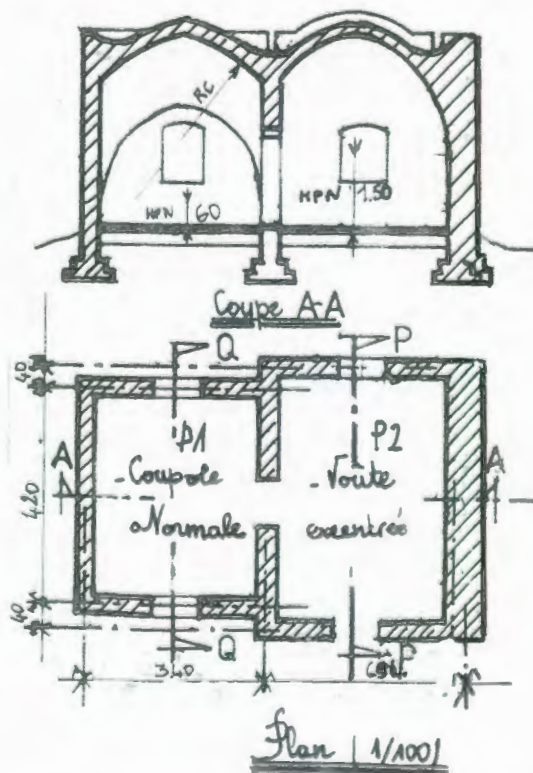 RC
HPN 60
HPN 1.50
Coupe A-A
Q P
40
P1 P2
A A
Coupole Voute
Normale excentrée
420
40
Q P
340
Plan 1/100